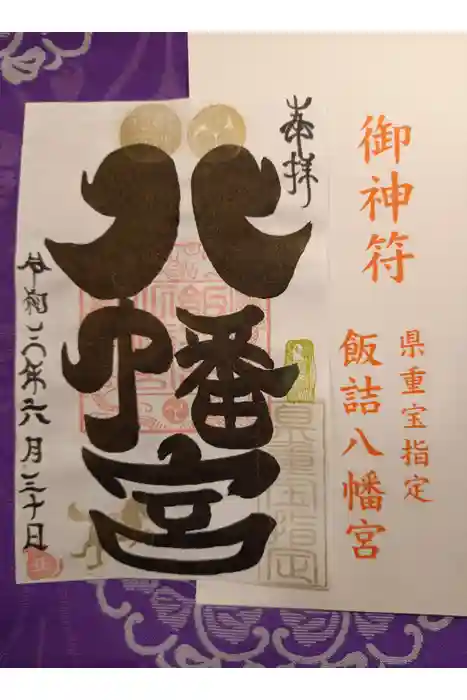 御神符
県重宝指定
飯詰八幡宮
奉拝
八幡宮
県重宝指定
令和二年六月三十日